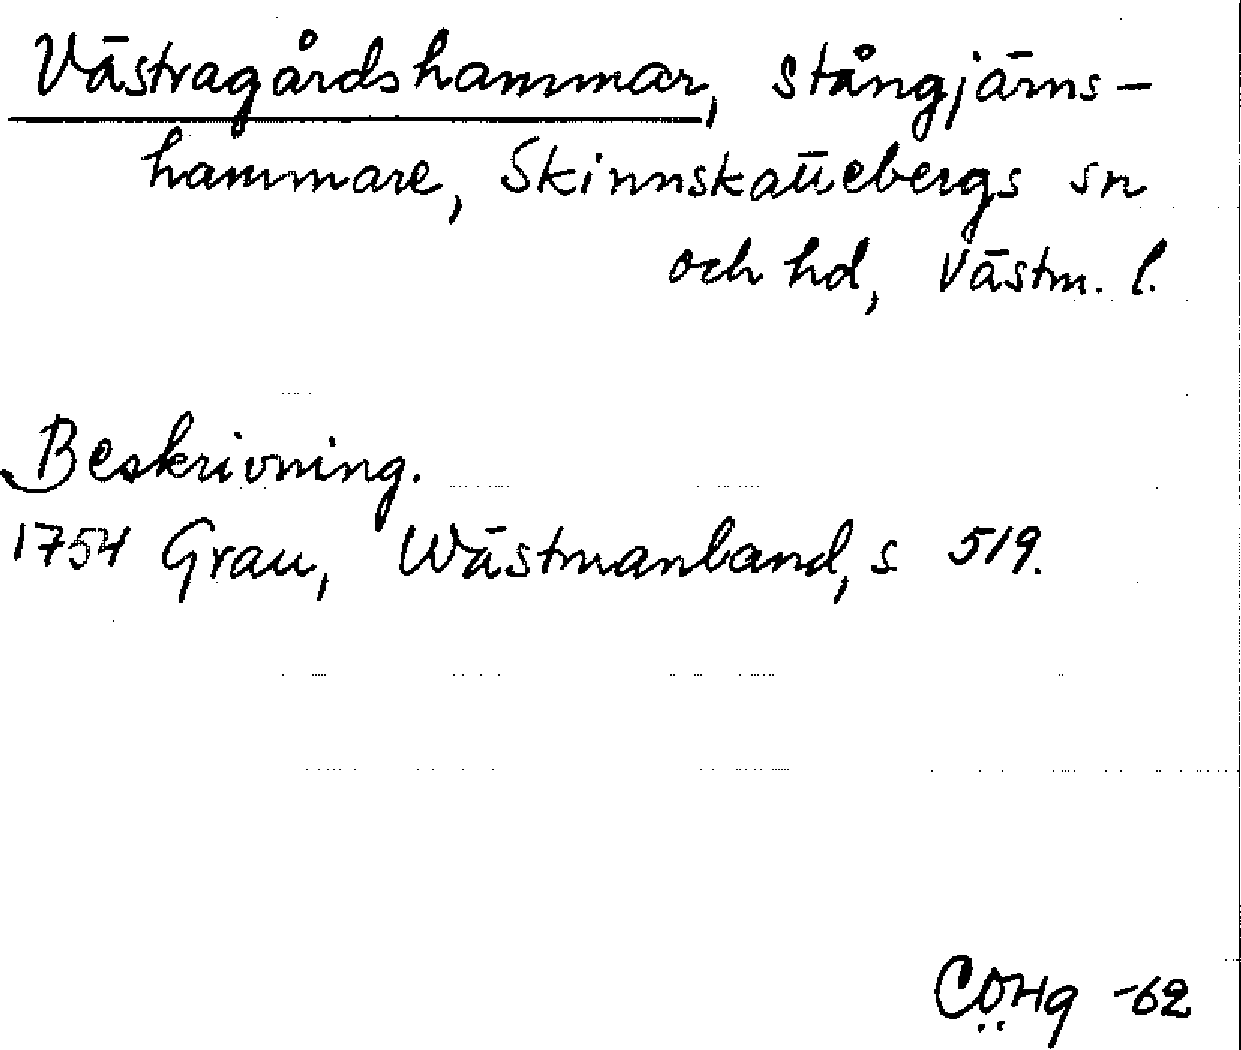 Västragårdshammar, stångjärns-
hammare, Skinnskattebergs sn
och hd, Västm. l.
Beskrivning.
1754 Grau, Wästmanland, s 519.
-62